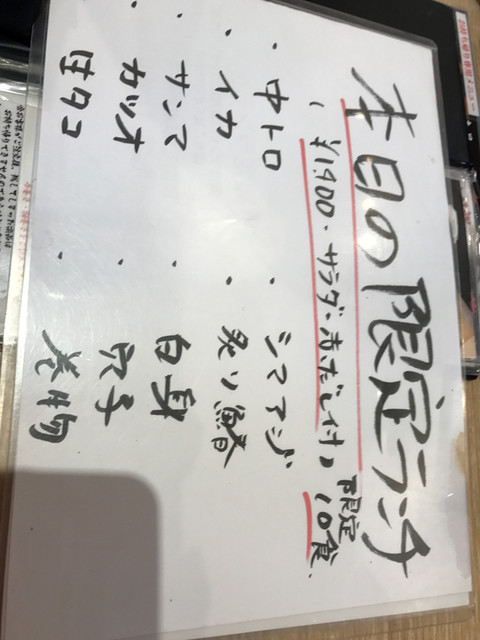 本日の限定ランチ
(¥1900・サラダ・赤だし付)
限定10食
・中トロ ・シマアジ
・イカ ・炙り鰆
・サンマ ・白身
・カツオ ・穴子
・生タコ ・巻物